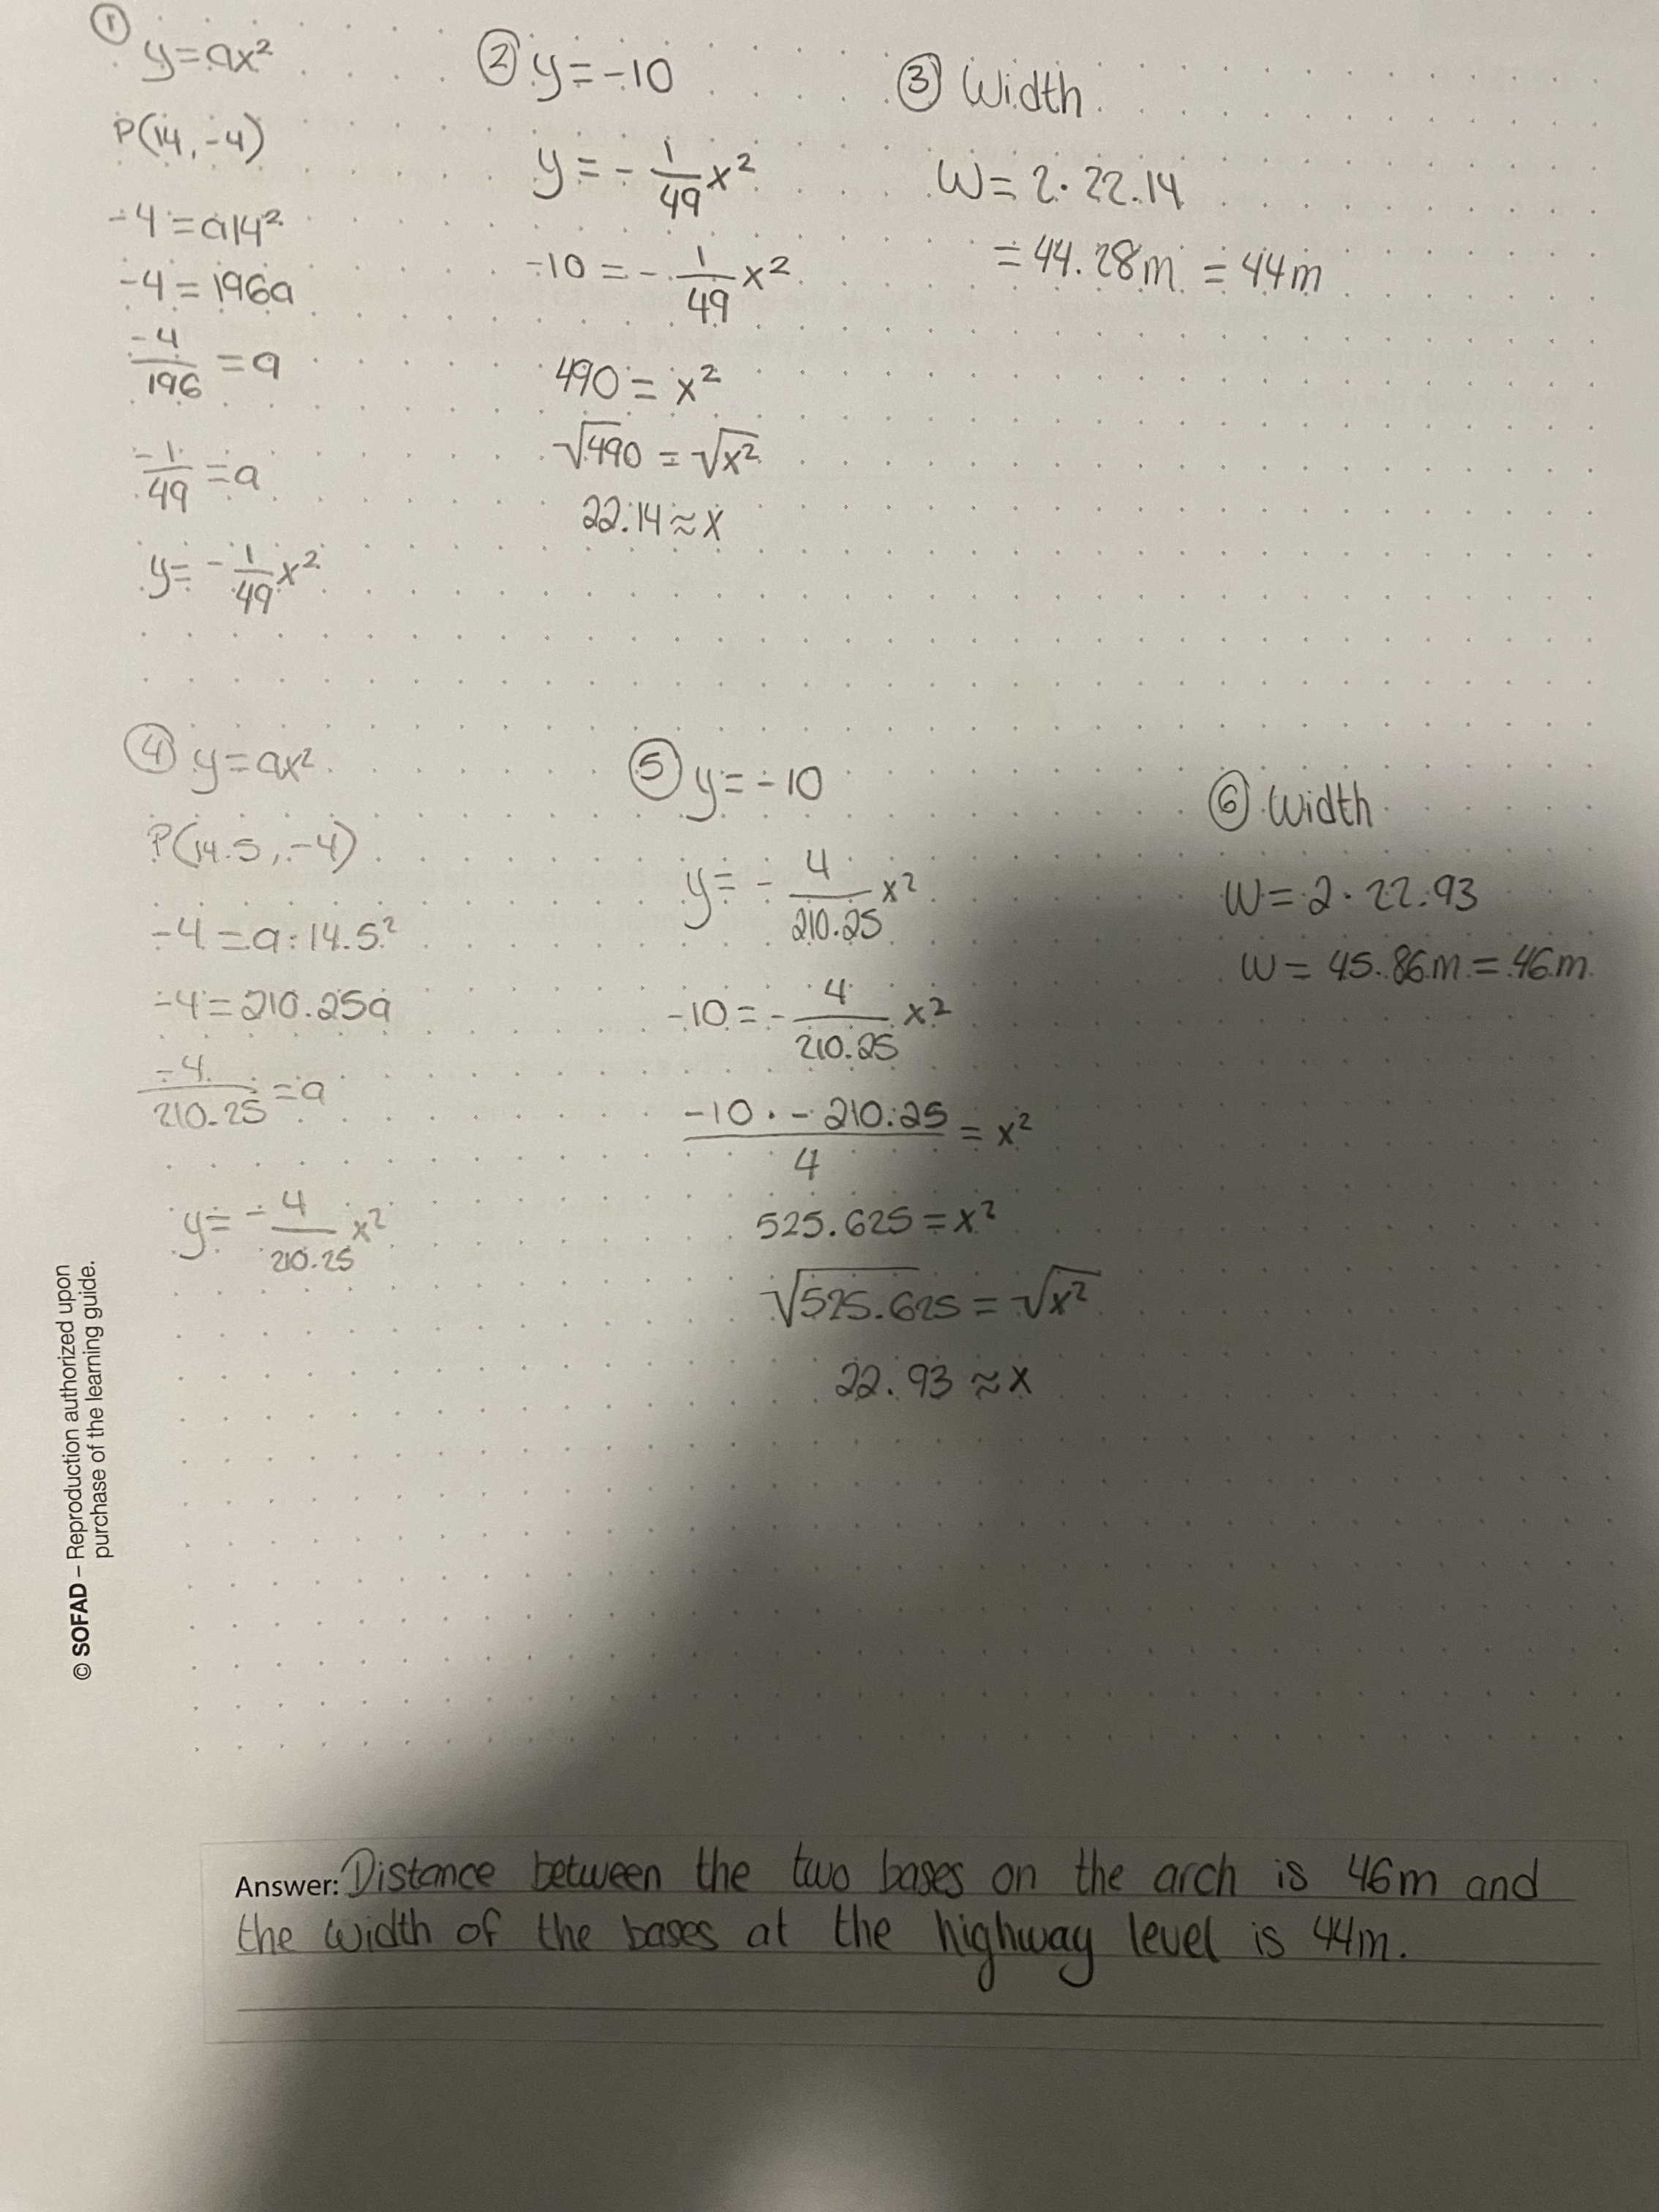 ① y=ax²
P(14,-4)
-4=a14²
-4=196a
-4/196=a
-1/49=a
y=-1/49x²
② y=-10
y=-1/49x²
-10=-1/49x²
490=x²
√490=√x²
22.14≈x
③ Width
W=2·22.14
=44.28m=44m
④ y=ax²
P(14.5,-4)
-4=a·14.5²
-4=210.25a
-4/210.25=a
y=-4/210.25x²
⑤ y=-10
y=-4/210.25x²
-10=-4/210.25x²
-10·-210.25/4=x²
525.625=x²
√525.625=√x²
22.93≈x
⑥ Width
W=2·22.93
W=45.86m=46m
© SOFAD – Reproduction authorized upon
purchase of the learning guide.
Answer: Distance between the two bases on the arch is 46m and
the width of the bases at the highway level is 44m.